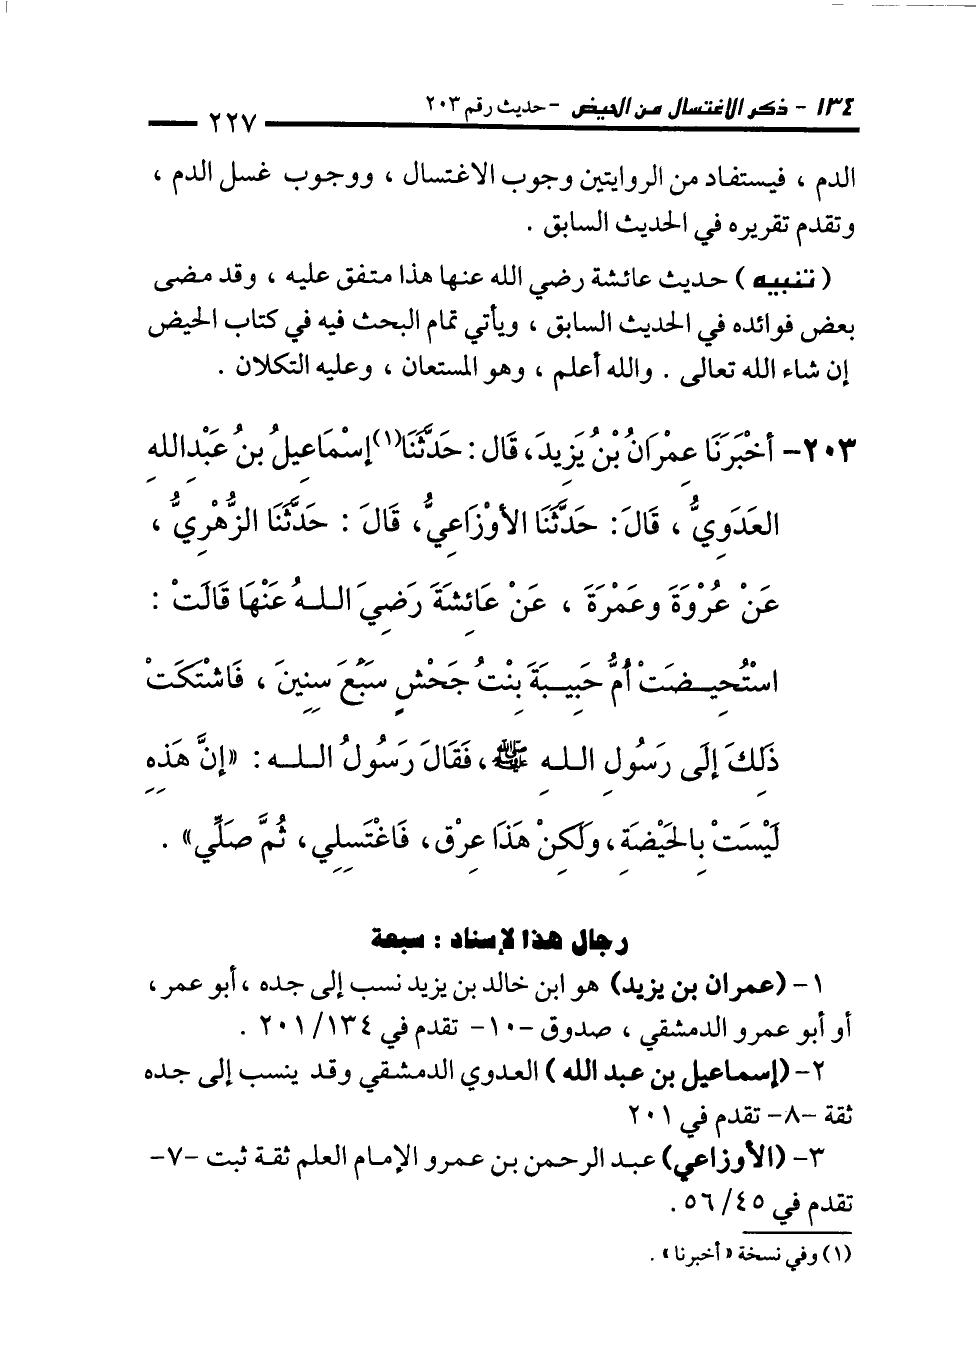 ١٣٤ - ذكر الاغتسال من الحيض - حديث رقم ٢٠٣
٢٢٧
الدم ، فيستفاد من الروايتين وجوب الاغتسال ، ووجوب غسل الدم ،
وتقدم تقريره في الحديث السابق .
( تنبيه ) حديث عائشة رضي الله عنها هذا متفق عليه ، وقد مضى
بعض فوائده في الحديث السابق ، ويأتي تمام البحث فيه في كتاب الحيض
إن شاء الله تعالى . والله أعلم ، وهو المستعان ، وعليه التكلان .
٢٠٣- أخْبَرَنَا عِمْرَانُ بْنُ يَزِيدَ، قَال : حَدَّثَنَا(١) إسْمَاعِيلُ بنُ عَبْدِاللهِ
العَدَوِيُّ ، قَالَ : حَدَّثَنَا الأوْزَاعِيُّ، قَالَ : حَدَّثَنَا الزُّهْرِيُّ ،
عَنْ عُرْوَةَ وعَمْرَةَ ، عَنْ عَائِشَةَ رَضِيَ اللهُ عَنْهَا قَالَتْ :
اسْتُحِيضَتْ أُمُّ حَبِيبَةَ بِنْتُ جَحْشٍ سَبْعَ سِنِينَ ، فَاشْتَكَتْ
ذَلِكَ إلَى رَسُولِ اللهِ ﷺ، فَقَالَ رَسُولُ اللهِ : «إنَّ هَذِهِ
لَيْسَتْ بِالحَيْضَةِ، ولَكِنْ هَذَا عِرْق، فَاغْتَسِلِي، ثُمَّ صَلِّي» .
رجال هذا لإسناد : سبعة
١- (عمران بن يزيد) هو ابن خالد بن يزيد نسب إلى جده ، أبو عمر،
أو أبو عمرو الدمشقي ، صدوق -١٠- تقدم في ٢٠١/١٣٤ .
٢- (إسماعيل بن عبد الله ) العدوي الدمشقي وقد ينسب إلى جده
ثقة -٨- تقدم في ٢٠١
٣- (الأوزاعي) عبد الرحمن بن عمرو الإمام العلم ثقة ثبت -٧-
تقدم في ٥٦/٤٥ .
(١) وفي نسخة «أخبرنا» .